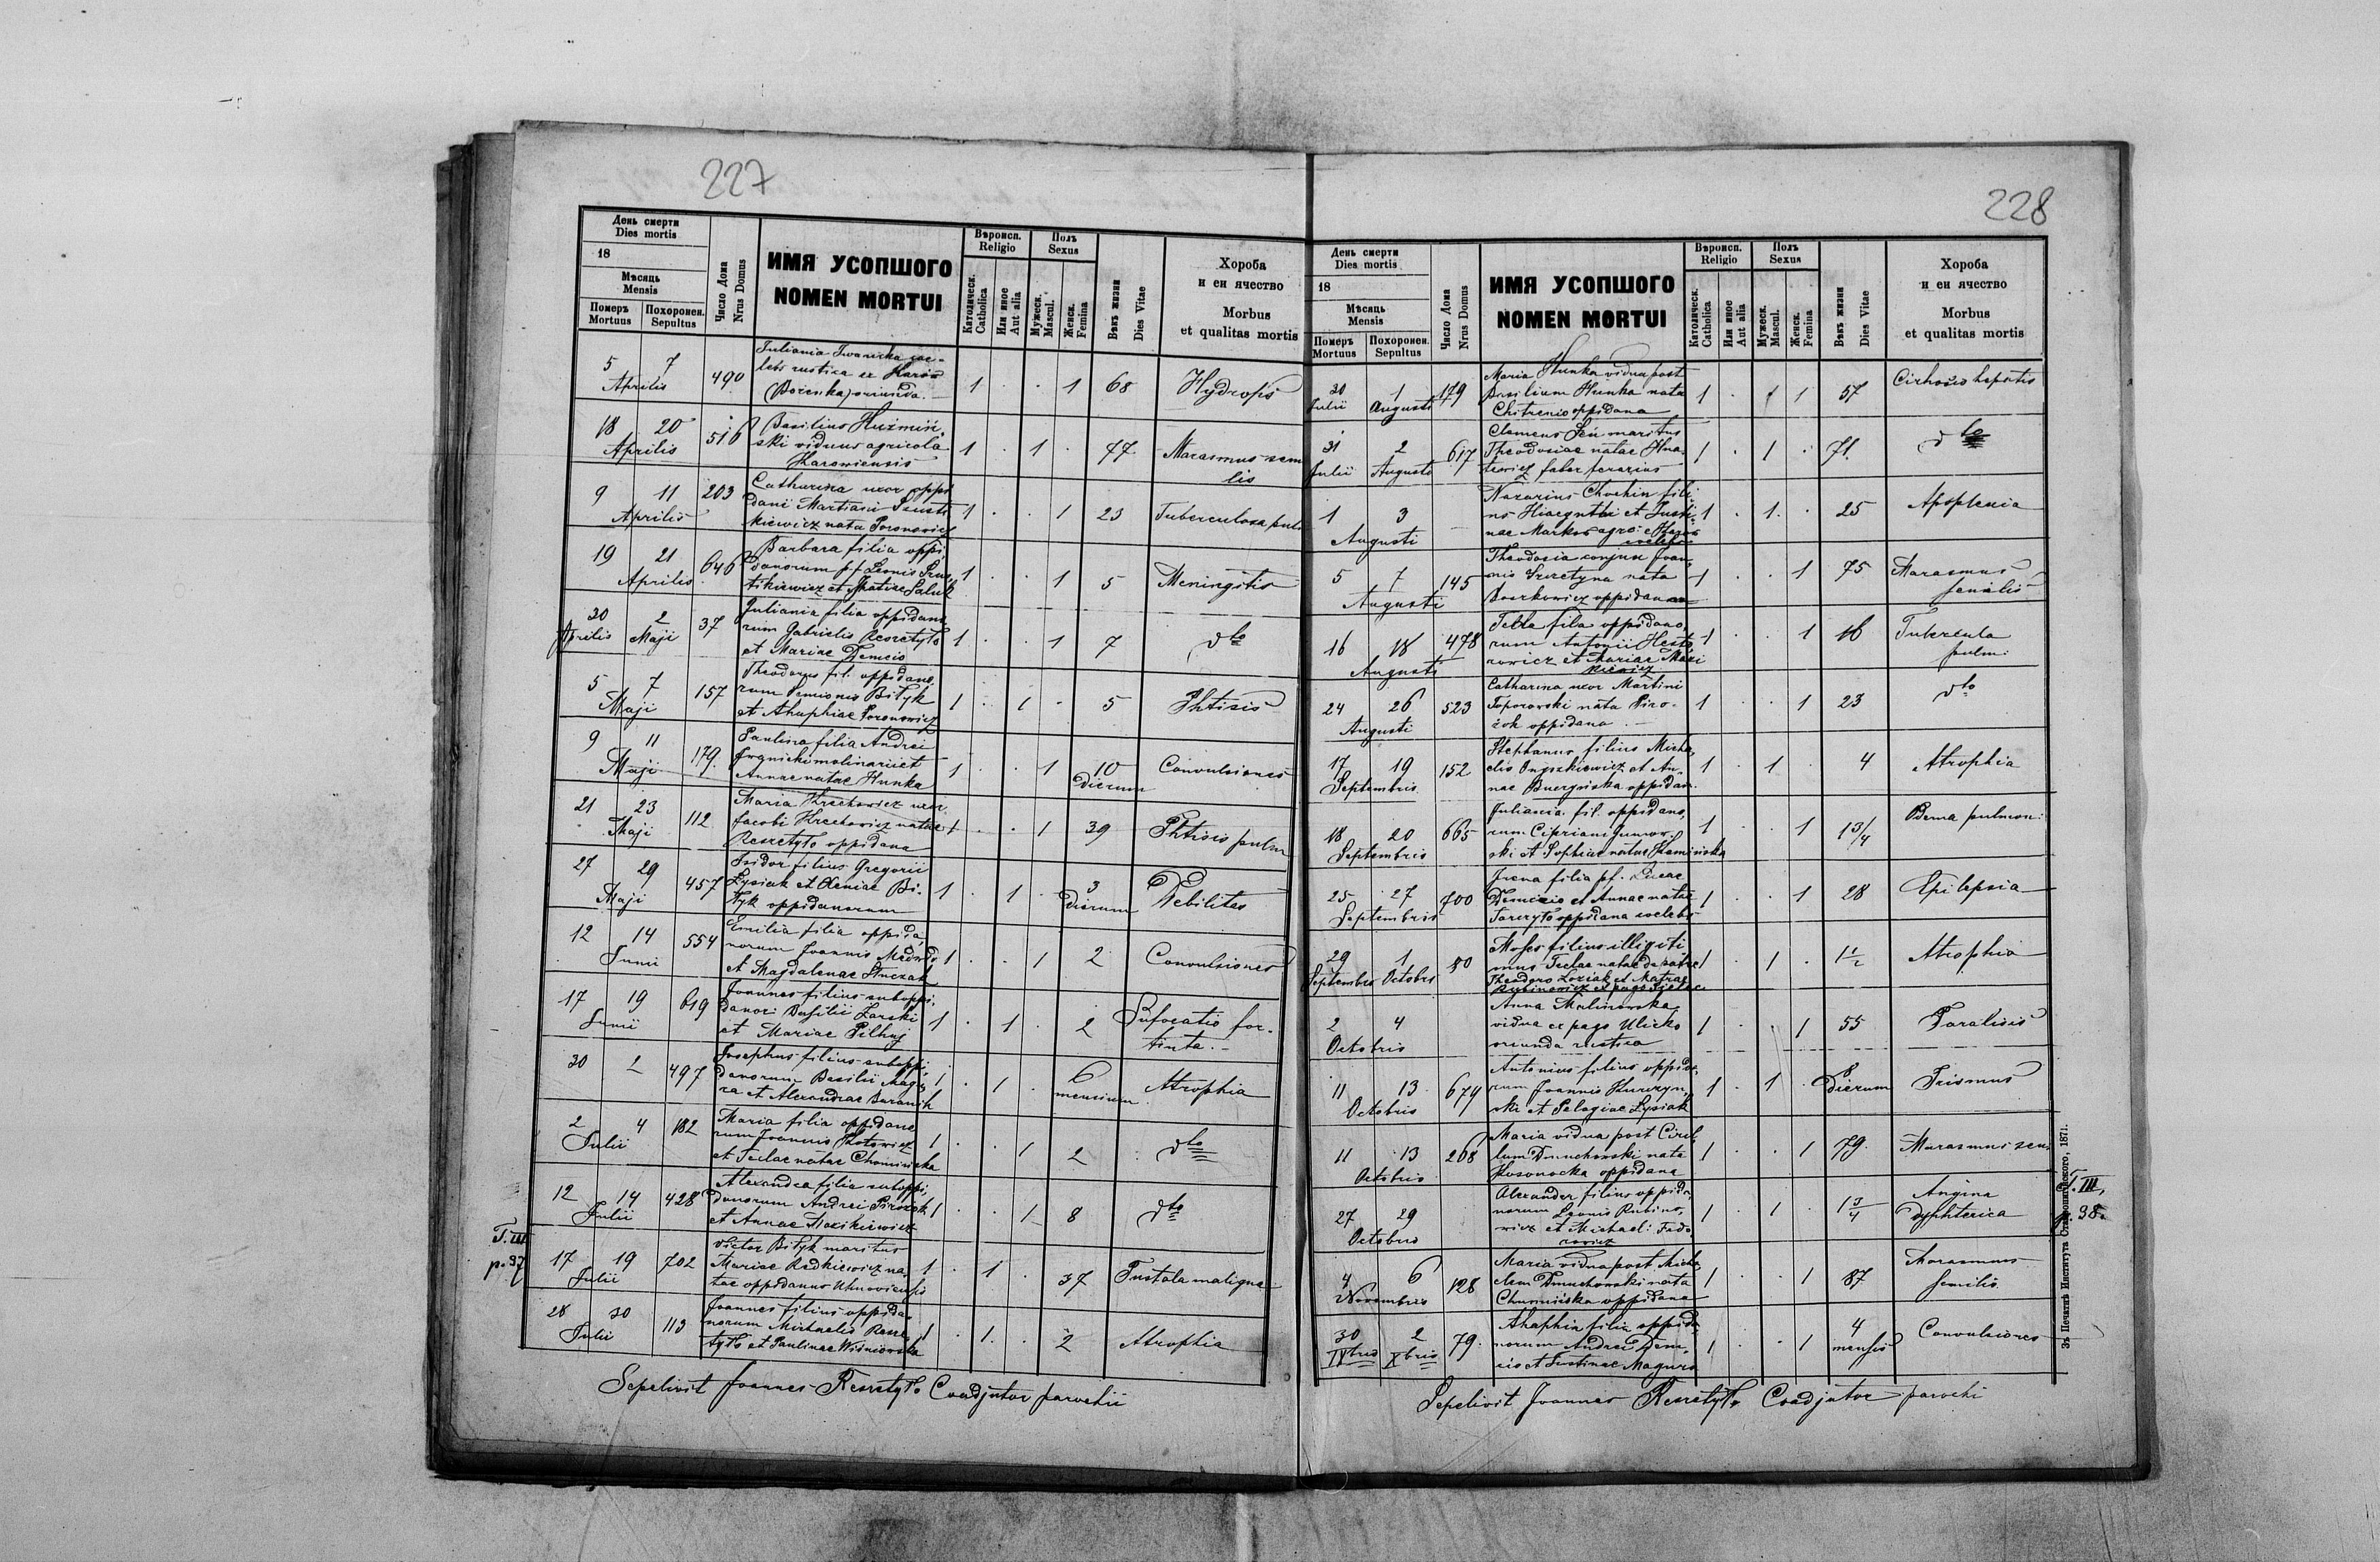 227
День смерти
Dies mortis
18
Мѣсяць
Mensis
Померъ Похоронен.
Mortuus Sepultus
Число Дома
Nrus Domus
ИМЯ УСОПШОГО
NOMEN MORTUI
Вѣроисп.
Religio
Католическ.
Catholica
Или иное
Aut alia
Полъ
Sexus
Мужеск.
Mascul.
Женск.
Femina
Вѣкъ жизни
Dies Vitae
Хороба
и еи ячество
Morbus
et qualitas mortis
5 7 Aprilis 490
Juliania
lebs rustica ex
oriunda
1 . . 1 68 Hydrops
18 20 Aprilis 516
Basilius Huzmiń-
ski viduus agricola
Karowiensis
1 . 1 . 77 Marasmus seni
lis
9 11 Aprilis 203
Catharina uxor oppi
dani Martiani
kiewicz nata Poronowicz
1 . . 1 23 Tuberculosa pulm
19 21 Aprilis 646
Barbara filia oppi
danorum Leonis Prus
tikiewicz et Saluk
1 . . 1 5 Meningitis
30 Aprilis 2 Maji 37
Juliania filia oppidano
rum Gabrielis Reszetyło
et Mariae Demcio
1 . . 1 7 dto
5 7 Maji 157
Theodorus fil. oppidano
rum Simionis Biłyk
et Ahaphiae Poronowicz
1 . 1 . 5 Phtisis
9 11 Maji 179.
Paulina filia Andrei
molinarii et
Annae natae Hunka
1 . . 1 10 Dierum Convulsiones
21 23 Maji 112
Maria Hrechowicz uxor
Jacobi Hrechowicz natae
Reszetyło oppidana
1 . . 1 39 Phtisis pulm
27 29 Maji 457
Isidor filius Gregorii
Łysiak et Xeniae Bi-
łyk oppidanorum
1 . 1 . 3 Dierum Debilitas
12 14 Junii 554
Emilia filia oppida
norum Joannis
et Magdalenae
1 . . 1 2 Convulsiones
17 19 Junii 619
Joannes filius suboppi.
danor: Basilii Łarski
et Mariae Pilhuj
1 . 1 . 2 Sufocatio for-
tinta.-
30 2 497
Josephus filius suboppi
danorum Basilii Magu
ra et Alexandrae Baranik
1 . 1 . 6 mensium Atrophia
2 4 Julii 182
Maria filia oppidano
rum Joannis Kotowicz
et Teclae natae Chomińska
1 . . 1 2 dto
12 14 Julii 428
Alexandra filia suboppi
danorum Andrei Pirożok
et Annae
1 . . 1 8 dto
T. III
p. 37
17 19 Julii 702
Victor Biłyk maritus
Mariae Radkiewicz na
tae oppidanus Uhnoviensis
1 . 1 . 37 Pustula maligna
28 30 Julii 113
Joannes filius oppida
norum Michaelis Resze
tyło et Paulinae Wiśniowska
1 . 1. . 2 Atrophia
Sepelivit Joannes Reszetyło Coadjutor parochii
228
День смерти
Dies mortis
18
Мѣсяць
Mensis
Померъ Похоронен.
Mortuus Sepultus
Число Дома
Nrus Domus
ИМЯ УСОПШОГО
NOMEN MORTUI
Вѣроисп.
Religio
Католическ.
Catholica
Или иное
Aut alia
Полъ
Sexus
Мужеск.
Mascul.
Женск.
Femina
Вѣкъ жизни
Dies Vitae
Хороба
и еи ячество
Morbus
et qualitas mortis
30 Julii 1 Augusti 179
Maria Hunka vidua post
Basilium Hunka nata
oppidana
1 . 1 57 Cirhosis hepatis
31 Julii 2 Augusti 617
Clemens maritus
Theodosiae natae Hna
tiewicz faber ferarius
1 . 1 . 71. dto
1 3 Augusti
Nazarius Chochin fili
us Hiacynthi et Justi
nae Markos agro:
1 . 1. . 25 Apoplexia
5 7 Augusti 145
Theodosia conjux Joan
nis nata
oppidana
1 . . 1 75 Marasmus
senilis
16 18 Augusti 478
Tecla filia oppidano
rum Antonii
rowicz et Mariae
1 . . 1 16 Tubercula
pulm:
24 26 Augusti 523
Catharina uxor Martini
Toporowski nata Piro-
żok oppidana.-
1 . . 1 23 dto
17 19 Septembris 152
Stephanus filius Micha
elis Onyszkiewicz et An-
nae oppidan.
1 . 1 . 4 Atrophia
18 20 Septembris 665
Juliania fil. oppidano
rum Cipriani
ski et Sophiae natae Kamińska
1 . . 1 1 3/4 pulmon:
25 27 Septembris 700
Irena filia pf. Lucae
Demcio et Annae natae
oppidana coelebs
1 . . 1 28 Epilepsia
29 Septembris 1 Octobris 80
Moses filius illigiti
mus Teclae natae de patre
Theodoro Łoziak et
1 . 1 . 1 1/2 Atrophia
2 4 Octobris
Anna Malinowska
vidua ex pago Ulicko
oriunda rustica
1 . . 1 55 Paralisis
11 13 Octobris 674
Antonius filius oppida
rum Joannis
ski et Pelagiae Łysiak
1 . 1 . 8 Dierum Trismus
11 13 Octobris 268
Maria vidua post Ciril
lum Dmuchowski nata
oppidana
1 . . 1 79. Marasmus sen
27 29 Octobris
Alexander filius oppida
norum Leonis Rubino
wicz et Michaeli: Fedo
rowicz
1 . 1 . 1 3/4 Angina
dyphterica
T. III,
p. 38.
4 6 Novembris 128
Maria vidua post Micha
elem Dmuchowski nata
Chomińska oppidana
1 . . 1 87 Marasmus
senilis
30 IXbris 2 Xbris 79.
Ahaphia filia oppida
norum Andrei Dem
cio et Justinae Magura
1 . . 1 4 mensis Convulsiones
Sepelivit Joannes Reszetyło Coadjutor parochi
Зъ Печатнѣ Института Ставропигійского, 1871.